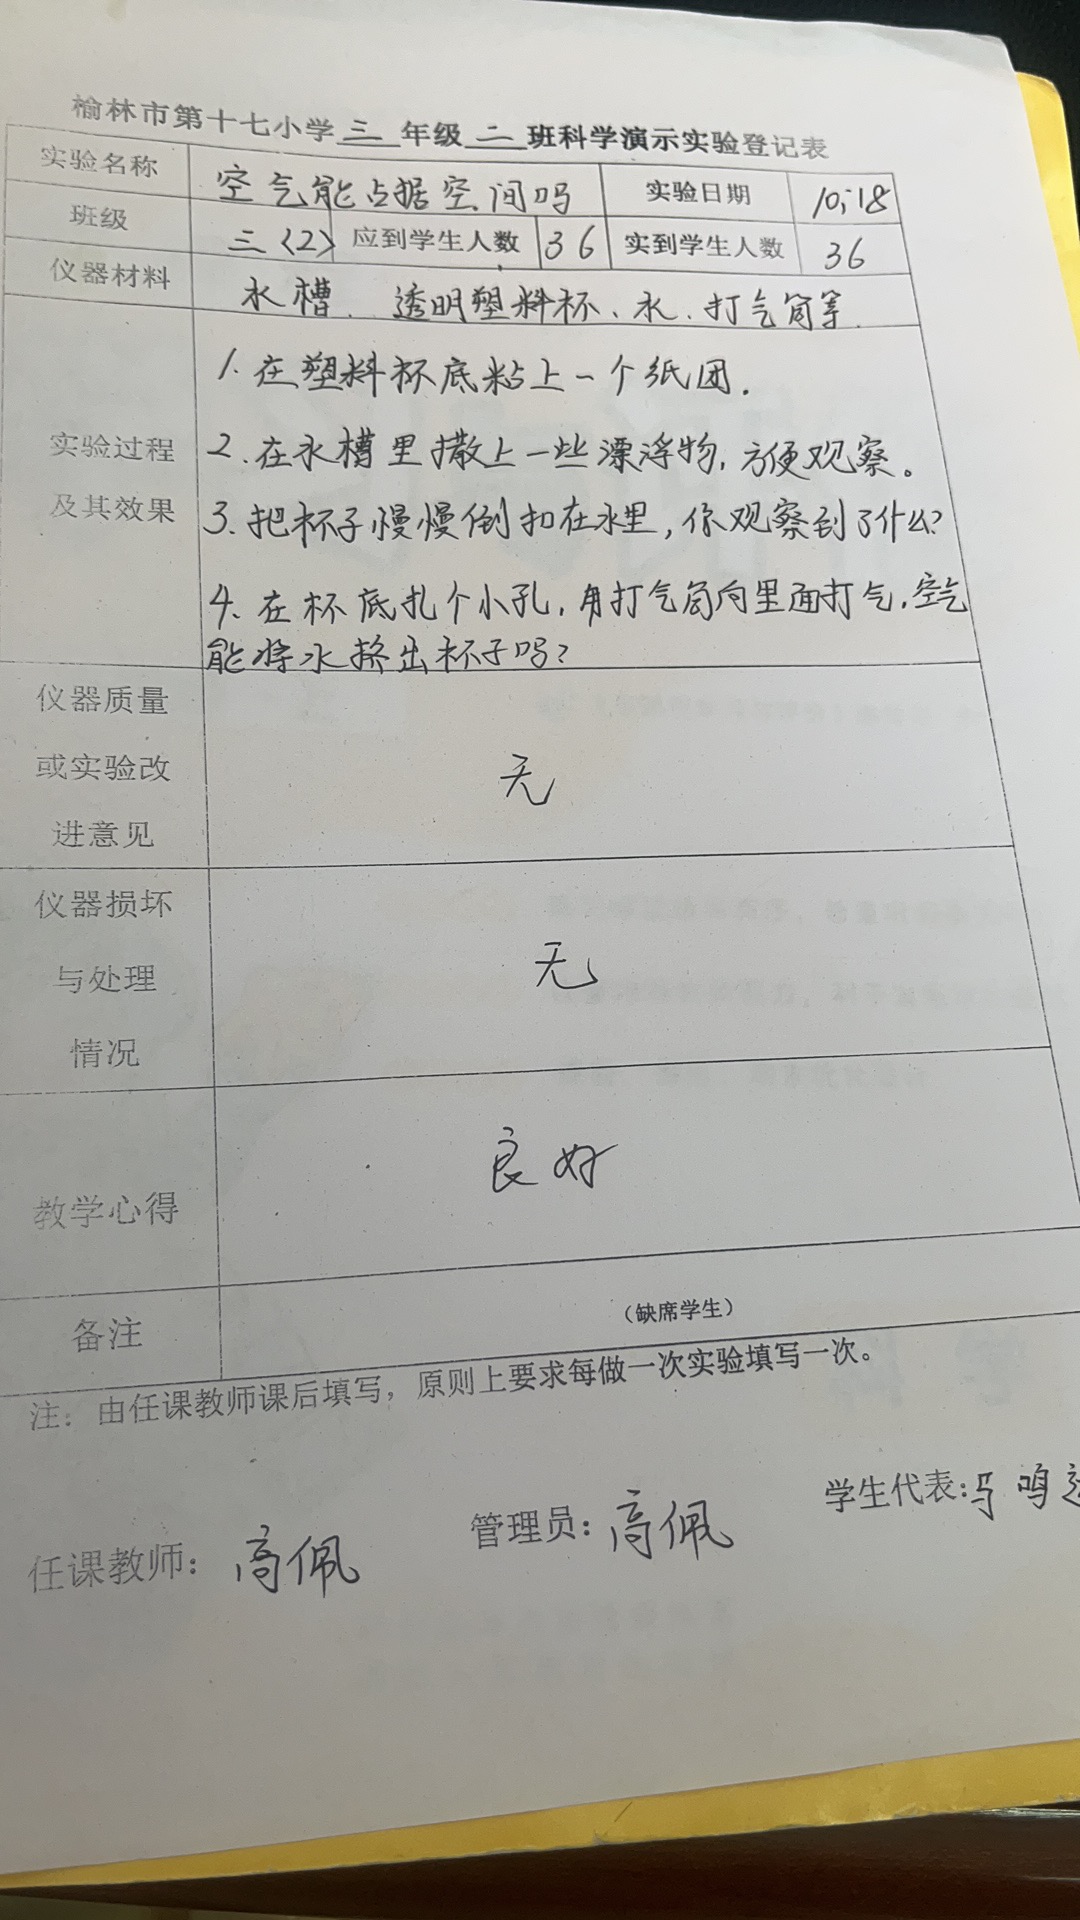 榆林市第十七小学 三 年级 二 班科学演示实验登记表
实验名称 空气能占据空间吗 实验日期 10,18
班级 三(2) 应到学生人数 36 实到学生人数 36
仪器材料 水槽、透明塑料杯、水、打气筒等
1.在塑料杯底粘上一个纸团.
实验过程 2.在水槽里撒上一些漂浮物,方便观察。
及其效果 3.把杯子慢慢倒扣在水里,你观察到了什么?
4.在杯底扎个小孔,用打气筒向里面打气,空气
能将水挤出杯子吗?
仪器质量
或实验改 无
进意见
仪器损坏
与处理 无
情况
教学心得 良好
备注 (缺席学生)
注:由任课教师课后填写,原则上要求每做一次实验填写一次。
任课教师:高佩 管理员:高佩 学生代表:马鸣